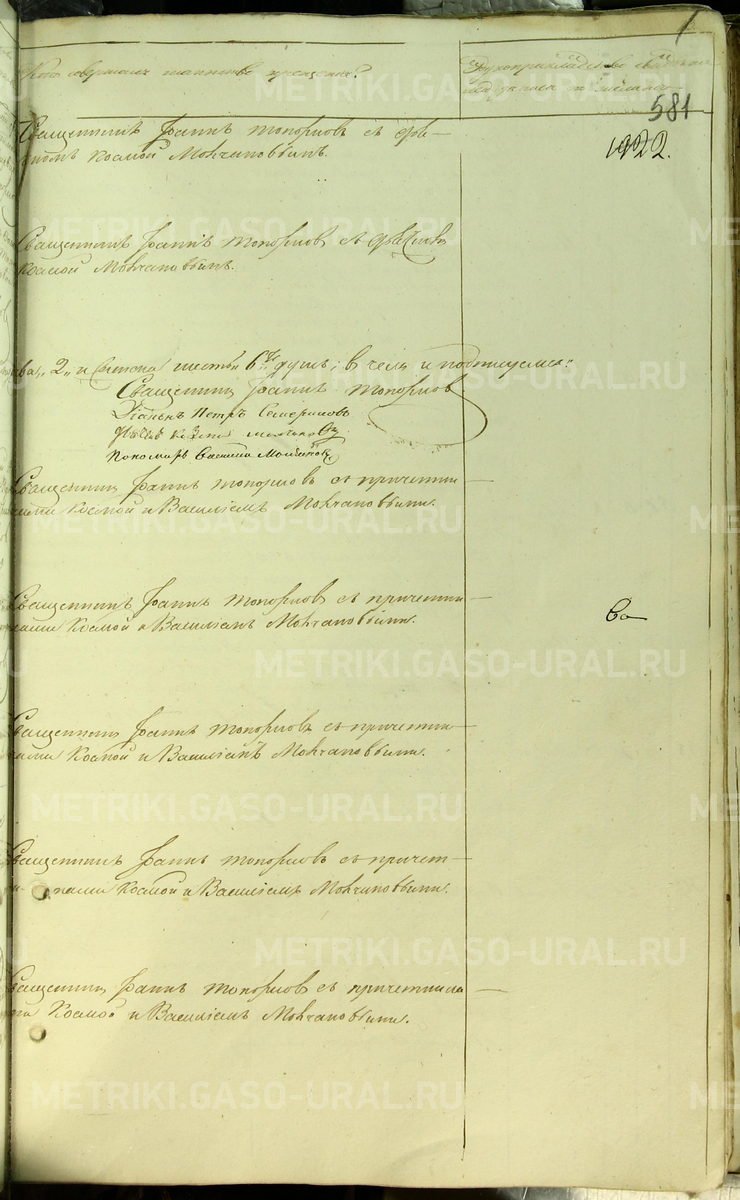 Кто совершалъ таинство крещенія?
Рукоприкладство свидѣте
лей записи по желанію
581
1922.
Священникъ Іоаннъ Топорковъ съ
Космой Молчановымъ.
Священникъ Іоаннъ Топорковъ съ
Космой Молчановымъ.
2 и шесть 6 душъ; в чемъ и подписуемся:
Священникъ Іоаннъ Топорковъ
Діаконъ Петръ
Пономарь Василій Молчановъ
Священникъ Іоаннъ Топорковъ съ причетни
ками Космой и Василіемъ Молчановыми.
Священникъ Іоаннъ Топорковъ съ причетни
ками Космой и Василіемъ Молчановыми.
Священникъ Іоаннъ Топорковъ съ причетни
ками Космой и Василіемъ Молчановыми.
Священникъ Іоаннъ Топорковъ съ причет
никами Космой и Василіемъ Молчановыми.
Священникъ Іоаннъ Топорковъ съ причетника
ми Космой и Василіемъ Молчановыми.
METRIKI.GASO-URAL.RU